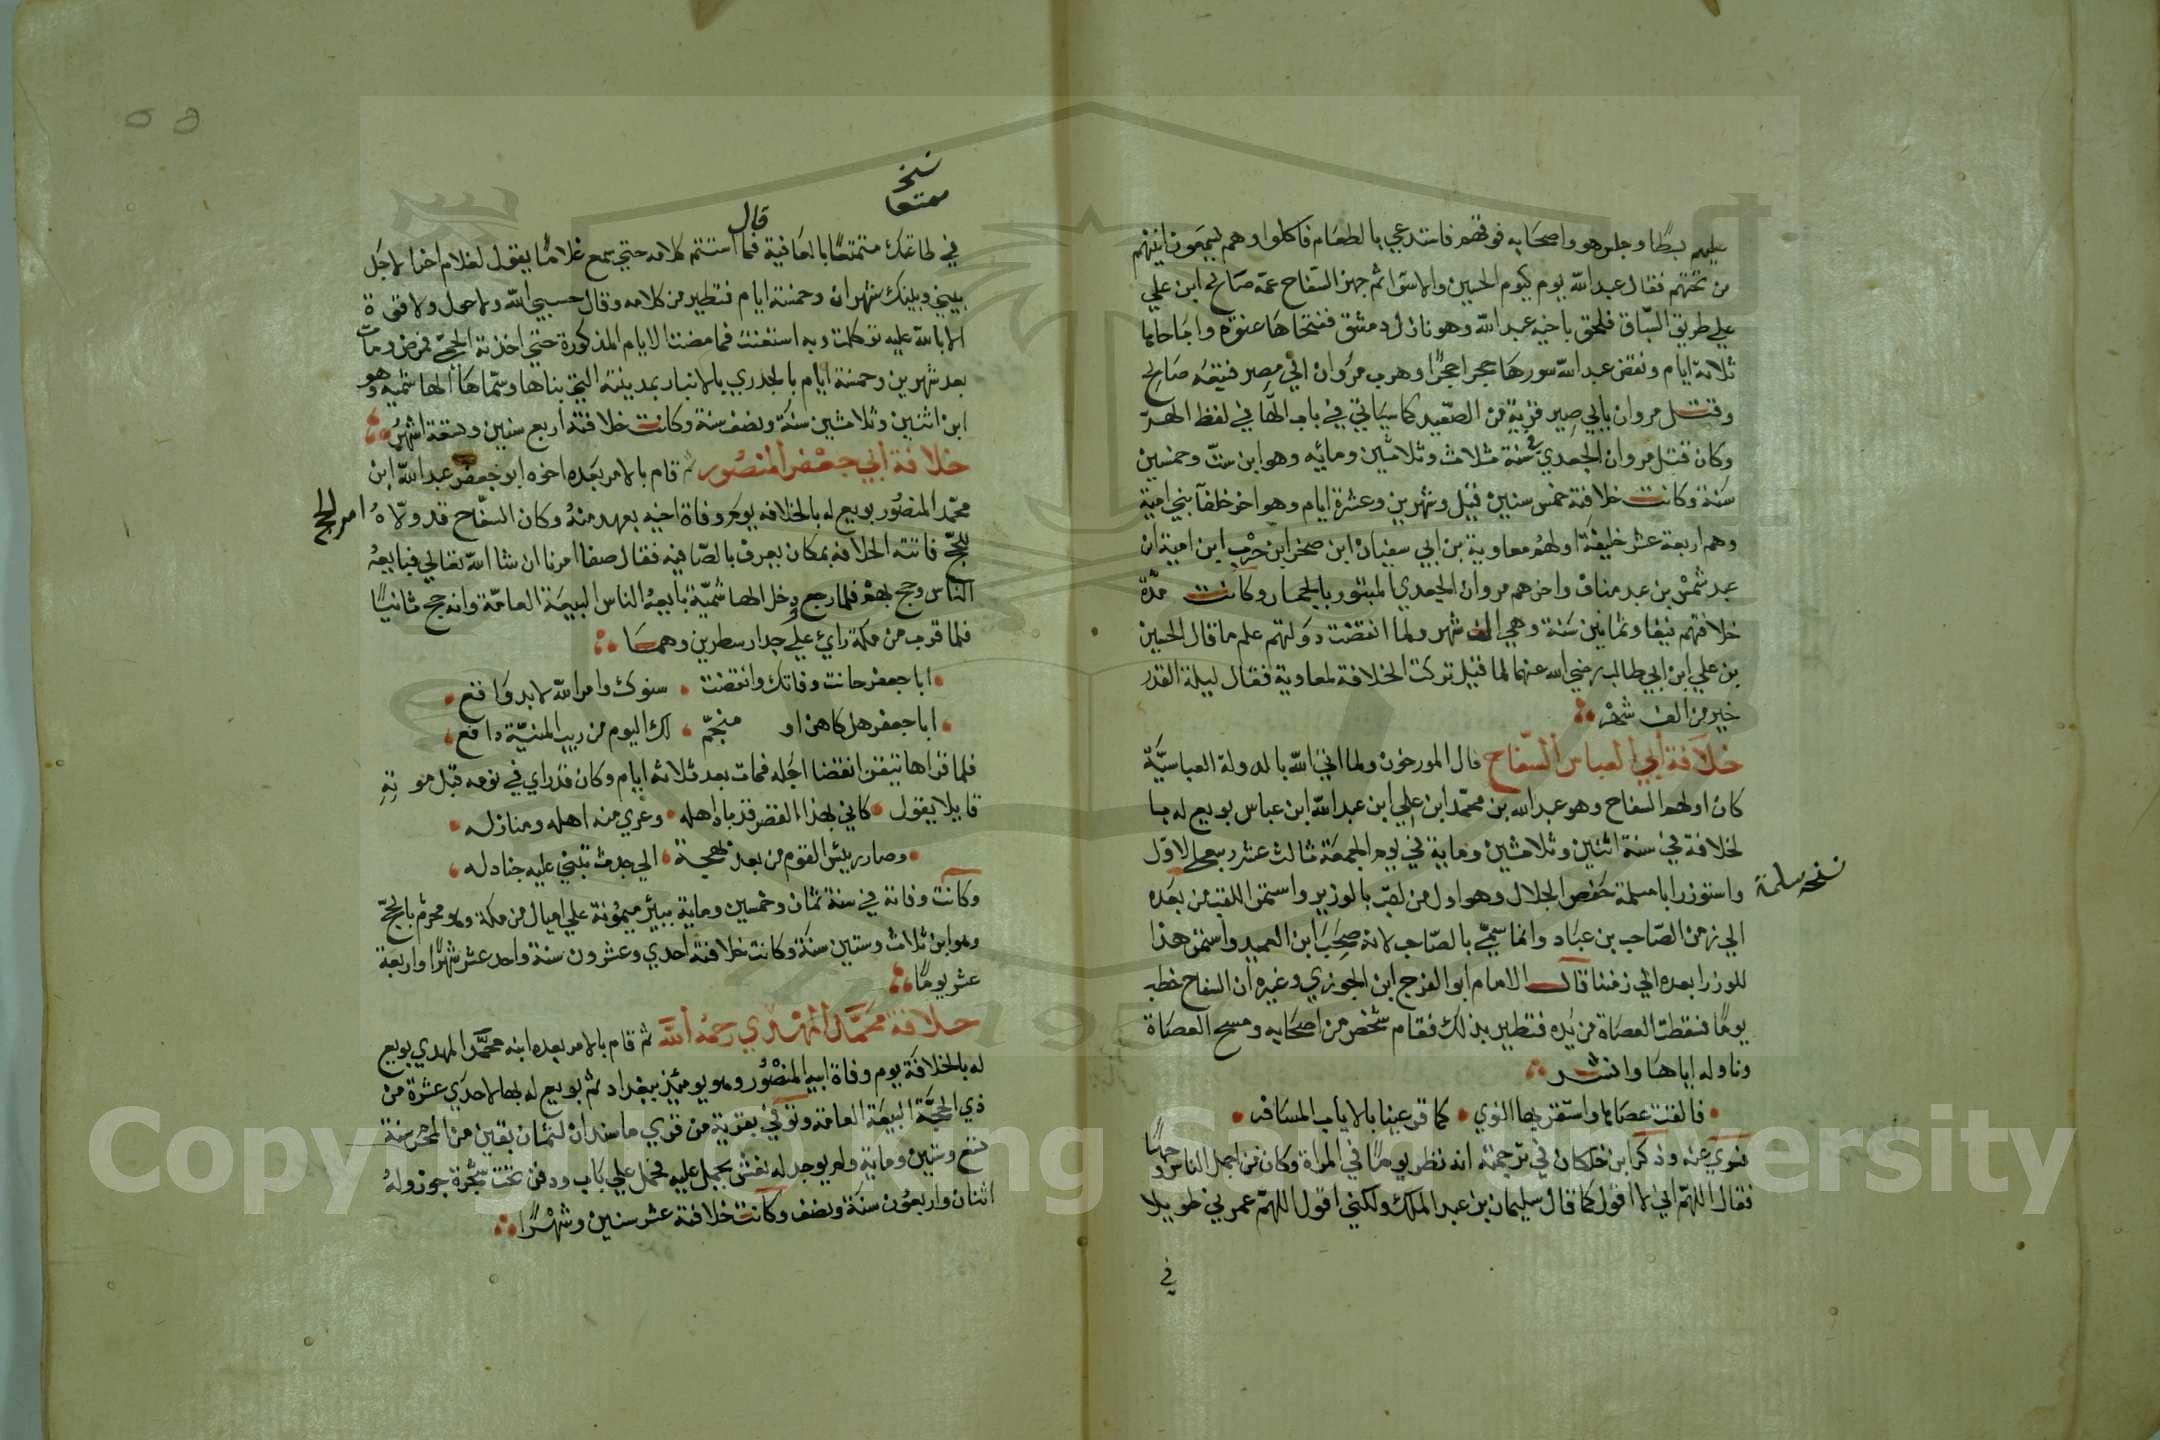 عليهم بسطا وجلس هو واصحابه فوقهم فاستدعي بالطعام فاكلوا وهم يسمعون انينهم
من تحتهم فقال عبد الله يوم كيوم الحسين والاسوا ثم جهز السفاح عمه صالح ابن علي
علي طريق السباق فلحق باخيه عبد الله وهو نازل دمشق ففتحاها عنوة واباحاها
ثلاثة ايام ونقض عبد الله سورها حجرا حجرا وهرب مروان الي مصر فتبعه صالح
وقتل مروان بابي صير قرية من الصعيد كما سياتي في باب الها في لفظ الهر
وكان قتل مروان الجعدي في سنة ثلاث وثلاثين ومائه وهو ابن ست وخمسين
سنة وكانت خلافته خمس سنين قيل وشهرين وعشرة ايام وهو اخر خلفا بني امية
وهم اربعة عشر خليفة اولهم معاوية بن ابي سفيان ابن صخر ابن حرب ابن امية ابن
عبد شمس بن عبد مناف واخرهم مروان الجعدي المبتور بالحمار وكانت مدة
خلافتهم نيفا وثمانين سنة وهي الف شهر ولما انقضت دولتهم علم ما قال الحسين
بن علي ابن ابي طالب رضي الله عنهما لما قيل تركت الخلافة لمعاوية فقال ليلة القدر
خير من الف شهر
خلافة أبي العباس السفاح قال المورخون ولما اتي الله بالدولة العباسية
كان اولهم السفاح وهو عبد الله بن محمد ابن علي ابن عبد الله ابن عباس بويع له با
لخلافة في سنة اثنين وثلاثين وماية في يوم الجمعة ثالث عشر ربيع الاول
واستوزر ابا مسلمة حفص الجلال وهو اول من لقب بالوزير واستمر اللقب من بعده
نسخه سلمة
الي زمن الصاحب بن عباد وانما سمي بالصاحب لانه صحب ابن العميد واستمر هذا
للوزرا بعده الي زمننا قال الامام ابو الفرج ابن الجوزي وغيره ان السفاح خطب
يوما فسقطت العصاة من يده فتطير بذلك فقام شخص من اصحابه ومسح العصاة
وناوله اياها وانشد
فالقت عصاها واستقر بها النوي كما قر عينا بالاياب المسافر
فسري عنه وذكر ابن خلكان في ترجمته انه نظر يوما في المراة وكان من اجمل الناس وجها
فقال اللهم اني لا اقول كما قال سليمان بن عبد الملك ولكني اقول اللهم عمرني طويلا
في
نسخه
ممتعا
في طاعتك متمتعا بالعافية فما استتم كلامه حتي سمع غلاما يقول لغلام اخر الاجل
قال
بيني وبينك شهران وخمسة ايام فتطير من كلامه وقال حسبي الله ولا حول ولا قوة
الا بالله عليه توكلت وبه استعنت فما مضت الايام المذكورة حتي اخذته الحمي فمرض ومات
بعد شهرين وخمسة ايام بالجدري بالانبار بمدينة التي بناها وسماها الهاشميه وهو
ابن اثنين وثلاثين سنة ونصف سنة وكانت خلافته اربع سنين وتسعة اشهر
خلافة أبي جعفر المنصور ثم قام بالامر بعده اخوه ابو جعفر عبد الله ابن
محمد المنصور بويع له بالخلافه يوم وفاة اخيه بعهد منه وكان السفاح قد ولاه
امر الحج
للحج فاتته الخلافه بمكان يعرف بالصافيه فقال صفا امرنا ان شا الله تعالي فبايعه
الناس وحج بهم فلما رجع دخل الهاشمية بايعه الناس البيعة العامة وانه حج ثانيا
فلما قرب من مكة راي علي جدار سطرين وهما
ابا جعفر حانت وفاتك وانقضت سنوك وامر الله لا بد واقع
ابا جعفر هل كاهن او منجم لك اليوم من ريب المنية دافع
فلما قراها تيقن انقضا اجله فمات بعد ثلاثه ايام وكان قد راي في نومه قبل موته
قايلا يقول كاني بهذا القصر قد باد اهله وعري منه اهله ومنازله
وصار رييس القوم من بعد بهجة الي جدث تبني عليه جنادله
وكانت وفاته في سنة ثمان وخمسين وماية ببير ميمونة علي اميال من مكة وهو محرم بالحج
وهو ابن ثلاث وستين سنة وكانت خلافته احدي وعشرون سنة واحد عشر شهرا واربعة
عشر يوما
خلافة محمد المهدي رحمه الله ثم قام بالامر بعده ابنه محمد المهدي بويع
له بالخلافة يوم وفاة ابيه المنصور وهو يوميذ ببغداد ثم بويع له بها لاحدي عشرة من
ذي الحجة البيعة العامة وتوفي بقرية من قري ماسبذان لثمان بقين من المحرم سنة
تسع وستين وماية ولم يوجد له نعش يحمل عليه فحمل علي باب ودفن تحت شجرة جوز وله
اثنان واربعون سنة ونصف وكانت خلافته عشر سنين وشهرا
Copyright © King Saud University